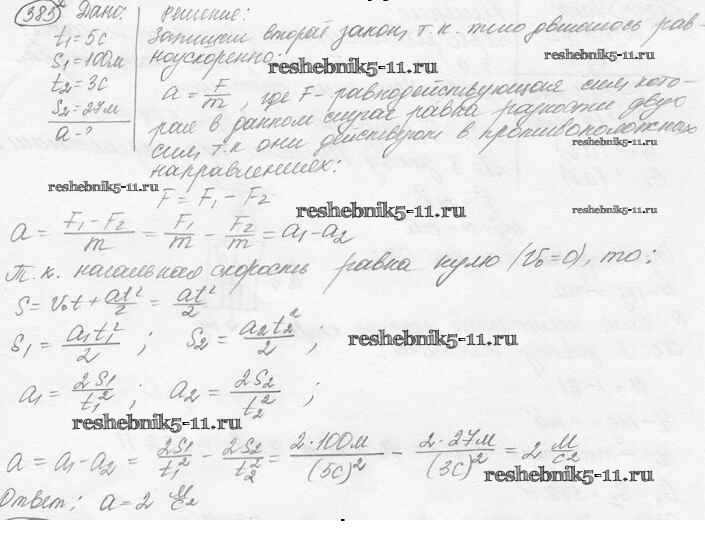 385 Дано: Решение:
t₁ = 5с Запишем второй закон, т.к. тело двигалось рав-
S₁ = 100м ноускоренно:
reshebnik5-11.ru
reshebnik5-11.ru
t₂ = 3с a = F/m, где F - равнодействующая сил, кото-
S₂ = 27м рая в данном случае равна разности двух
a - ? сил, т.к они действуют в противоположных
reshebnik5-11.ru
направлениях:
reshebnik5-11.ru
F = F₁ - F₂
reshebnik5-11.ru
reshebnik5-11.ru
a = (F₁ - F₂)/m = F₁/m - F₂/m = a₁ - a₂
Т.к. начальная скорость равна нулю (V₀ = 0), то:
S = V₀t + at²/2 = at²/2
S₁ = a₁t₁²/2 ; S₂ = a₂t₂²/2 ,
reshebnik5-11.ru
a₁ = 2S₁/t₁² ; a₂ = 2S₂/t₂² ;
reshebnik5-11.ru
a = a₁ - a₂ = 2S₁/t₁² - 2S₂/t₂² = 2·100м/(5с)² - 2·27м/(3с)² = 2 м/с²
reshebnik5-11.ru
Ответ: a = 2 м/с²